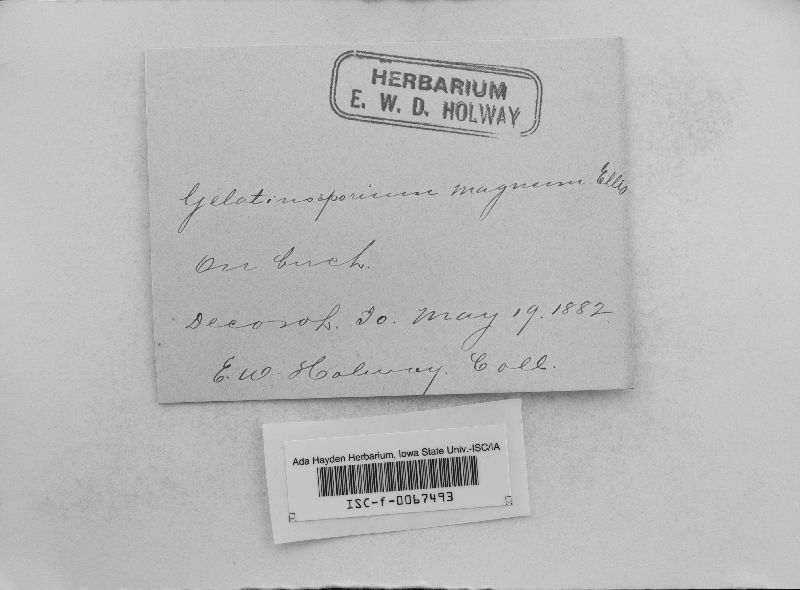 HERBARIUM
E. W. D. HOLWAY
Gelatinosporium magnum Ellis
On birch.
Decorah. Io. May 19. 1882
E. W. Holway. Coll.
Ada Hayden Herbarium, Iowa State Univ.-ISC/IA
ISC-f-0067493